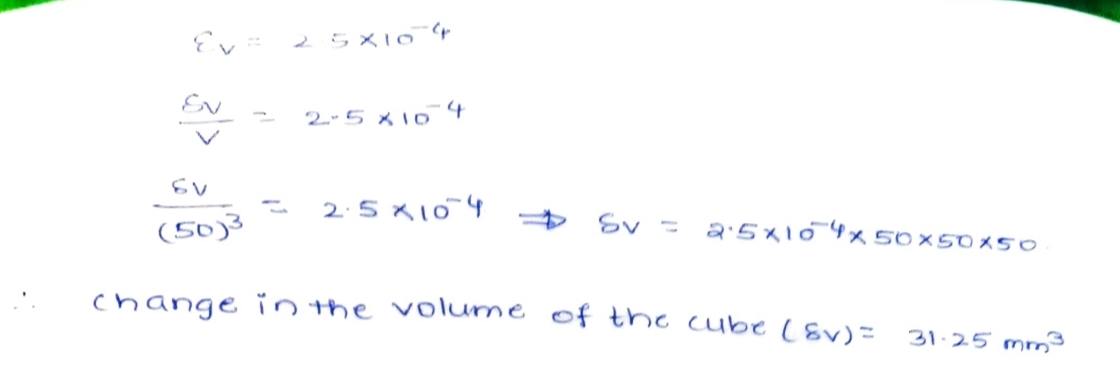 εv = 2.5×10⁻⁴
δv/v = 2.5×10⁻⁴
δv/(50)³ = 2.5×10⁻⁴ ⇒ δv = 2.5×10⁻⁴×50×50×50
∴ change in the volume of the cube (δv) = 31.25 mm³